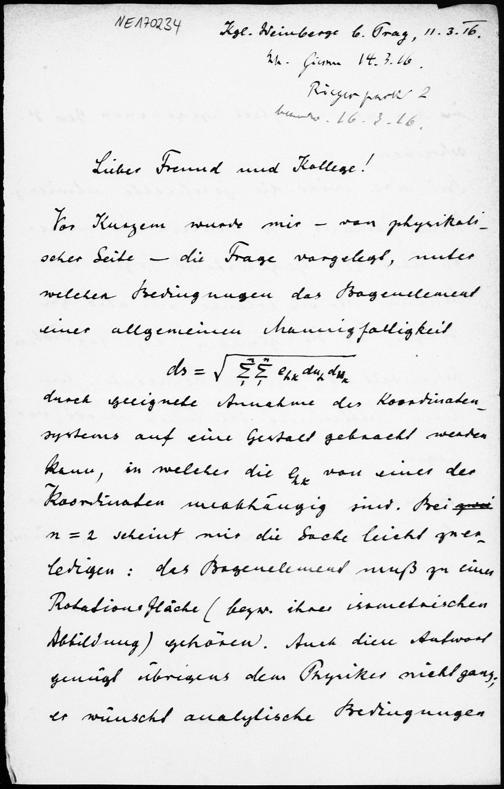 NE170234
Kgl. Weinberge b. Prag, 11.3.16.
14.3.16.
Riegerpark 2
16.3.16.
Lieber Freund und Kollege!
Vor Kurzem wurde mir – von physikali-
scher Seite – die Frage vorgelegt, unter
welchen Bedingungen das Bogenelement
einer allgemeinen Mannigfaltigkeit
ds = √(Σ₁ⁿ Σ₁ⁿ e_hk du_h du_k)
durch geeignete Annahme des Koordinaten-
systems auf eine Gestalt gebracht werden
kann, in welcher die e_hk von einer der
Koordinaten unabhängig sind. Bei
n = 2 scheint mir die Sache leicht zu er-
ledigen: das Bogenelement muß zu einer
Rotationsfläche (bezw. ihrer isometrischen
Abbildung) gehören. Auch diese Antwort
genügt übrigens dem Physiker nicht ganz,
er wünscht analytische Bedingungen